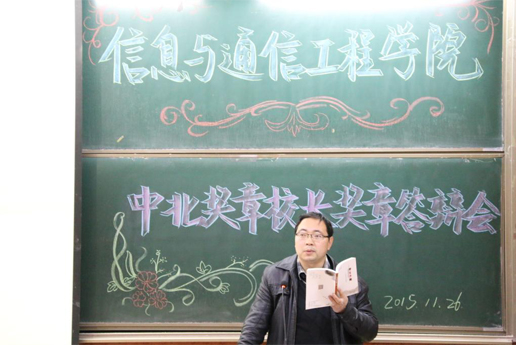 信息与通信工程学院
中北奖章校长奖章答辩会
2015.11.26